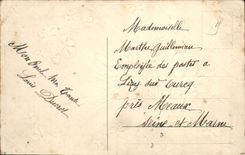 Mon Oncle Ma Tante
Louis
Mademoiselle
Marthe Guillemineau
Employée des postes à
Lizy sur Ourcq
près Meaux
Seine et Marne